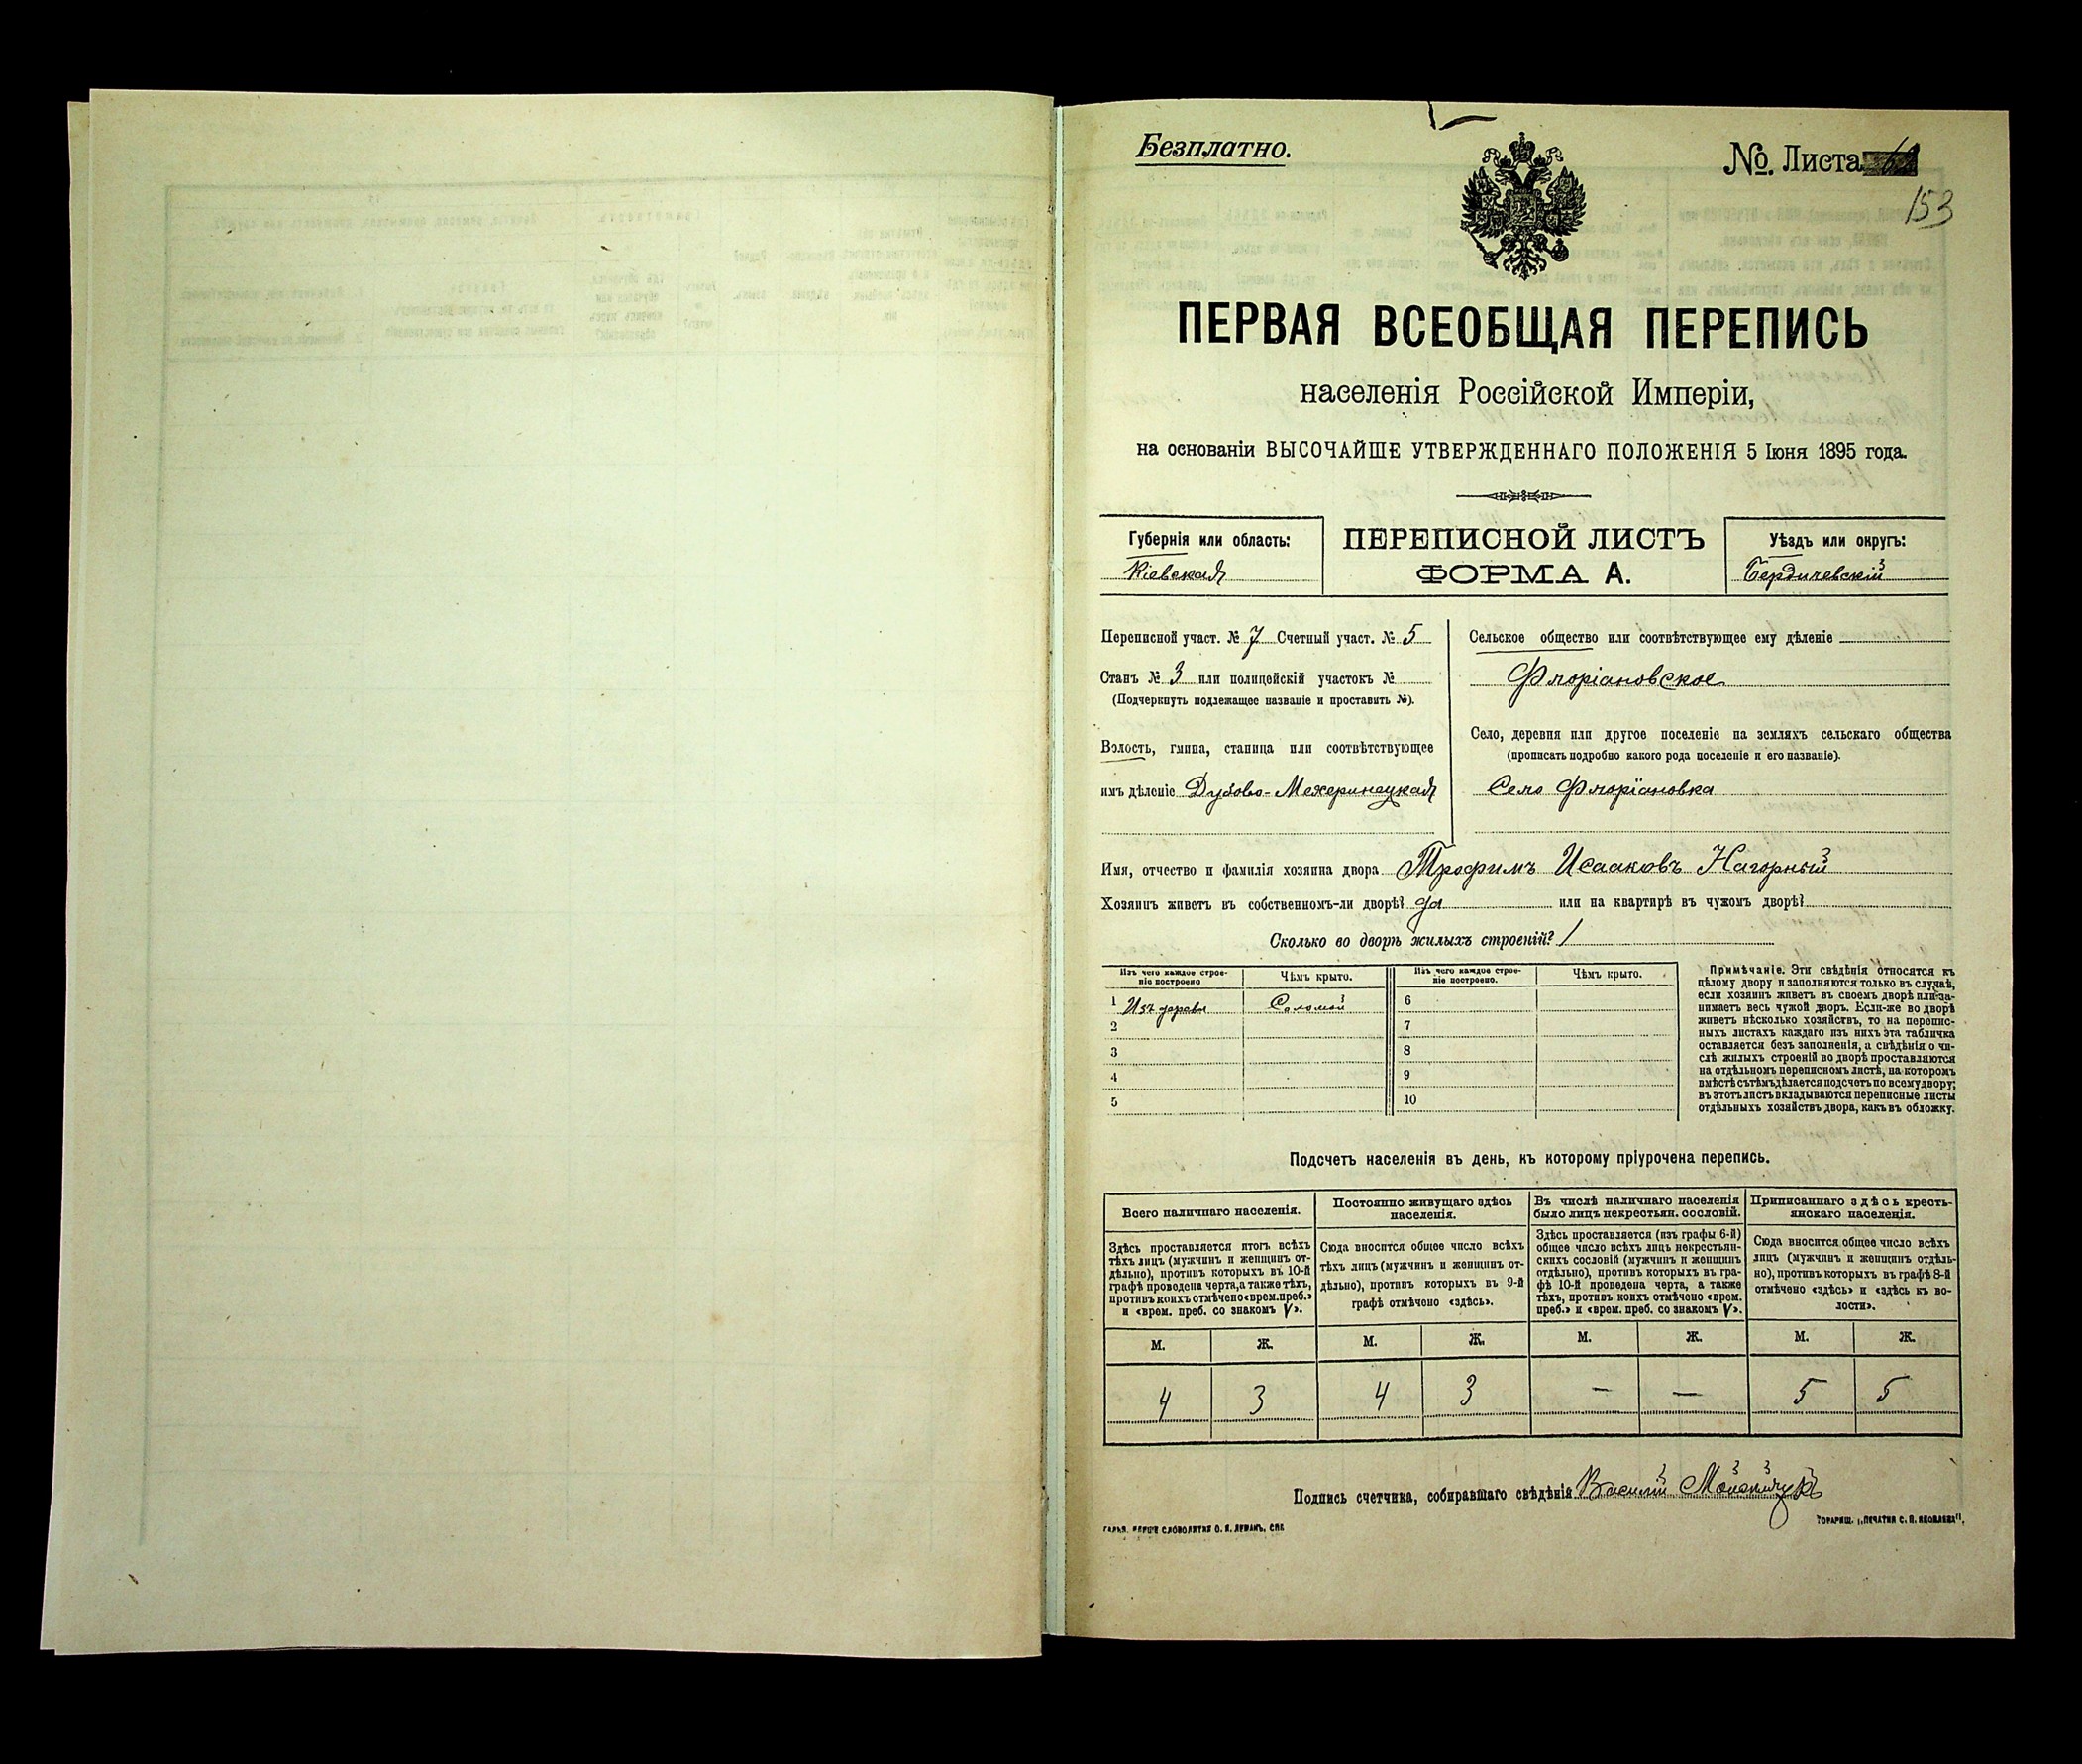 Безплатно.
№. Листа
153
ПЕРВАЯ ВСЕОБЩАЯ ПЕРЕПИСЬ
населенія Россійской Имперіи,
на основаніи ВЫСОЧАЙШЕ УТВЕРЖДЕННАГО ПОЛОЖЕНІЯ 5 Іюня 1895 года.
Губернія или область:
Кіевская
ПЕРЕПИСНОЙ ЛИСТЪ
ФОРМА А.
Уѣздъ или округъ:
Бердичевскій
Переписной участ. № 7 Счетный участ. № 5
Станъ № 3 или полицейскій участокъ №
(Подчеркнуть подлежащее названіе и проставить №).
Волость, гмина, станица или соотвѣтствующее
имъ дѣленіе Дубово-Махаринецкая
Сельское общество или соотвѣтствующее ему дѣленіе
Флоріановское
Село, деревня или другое поселеніе на земляхъ сельскаго общества
(прописать подробно какого рода поселеніе и его названіе).
Село Флоріановка
Имя, отчество и фамилія хозяина двора Трофимъ Исааковъ Нагорный
Хозяинъ живетъ въ собственномъ-ли дворѣ? да или на квартирѣ въ чужомъ дворѣ?
Сколько во дворѣ жилыхъ строеній? 1
Изъ чего каждое строе-
ніе построено
Чѣмъ крыто.
Изъ чего каждое строе-
ніе построено.
Чѣмъ крыто.
1 Изъ дерева Соломой 6
2 7
3 8
4 9
5 10
Примѣчаніе. Эти свѣдѣнія относятся къ
цѣлому двору и заполняются только въ случаѣ,
если хозяинъ живетъ въ своемъ дворѣ или за-
нимаетъ весь чужой дворъ. Если-же во дворѣ
живетъ нѣсколько хозяйствъ, то на перепис-
ныхъ листахъ каждаго изъ нихъ эта табличка
оставляется безъ заполненія, а свѣдѣнія о чи-
слѣ жилыхъ строеній во дворѣ проставляются
на отдѣльномъ переписномъ листѣ, на которомъ
вмѣстѣ съ тѣмъ дѣлается подсчетъ по всему двору;
въ этотъ листъ вкладываются переписные листы
отдѣльныхъ хозяйствъ двора, какъ въ обложку.
Подсчетъ населенія въ день, къ которому пріурочена перепись.
Всего наличнаго населенія.
Постоянно живущаго здѣсь
населенія.
Въ числѣ наличнаго населенія
было лицъ некрестьян. сословій.
Приписаннаго здѣсь кресть-
янскаго населенія.
Здѣсь проставляется итогъ всѣхъ
тѣхъ лицъ (мужчинъ и женщинъ от-
дѣльно), противъ которыхъ въ 10-й
графѣ проведена черта, а также тѣхъ,
противъ коихъ отмѣчено «врем. преб.»
и «врем. преб. со знакомъ V».
Сюда вносится общее число всѣхъ
тѣхъ лицъ (мужчинъ и женщинъ от-
дѣльно), противъ которыхъ въ 9-й
графѣ отмѣчено «здѣсь».
Здѣсь проставляется (изъ графы 6-й)
общее число всѣхъ лицъ некрестьян-
скихъ сословій (мужчинъ и женщинъ
отдѣльно), противъ которыхъ въ гра-
фѣ 10-й проведена черта, а также
тѣхъ, противъ коихъ отмѣчено «врем.
преб.» и «врем. преб. со знакомъ V».
Сюда вносится общее число всѣхъ
лицъ (мужчинъ и женщинъ отдѣль-
но), противъ которыхъ въ графѣ 8-й
отмѣчено «здѣсь» и «здѣсь къ во-
лости».
М. Ж. М. Ж. М. Ж. М. Ж.
4 3 4 3 — — 5 5
Подпись счетчика, собиравшаго свѣдѣнія Василій
СЛОВОЛИТНЯ О. И. ЛЕМАНЪ, СПБ
ТОВАРИЩ. „ПЕЧАТНЯ С. П. ЯКОВЛЕВА",